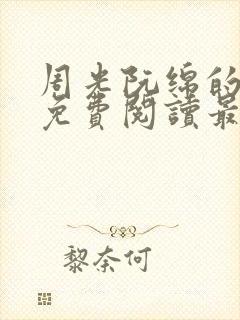 周光阮綿的
免費閱讀最
黎奈何